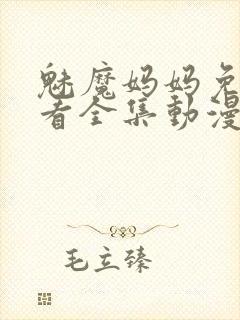 魅魔妈妈免
看全集動漫
毛立臻